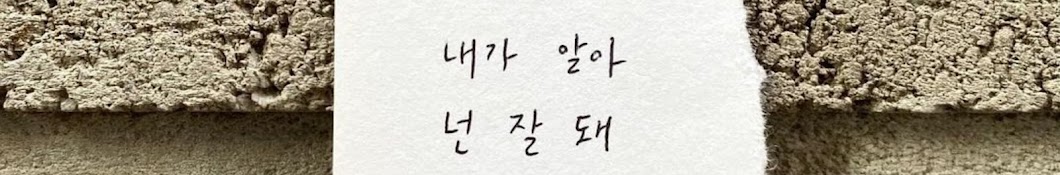 내가 알아
넌 잘 돼